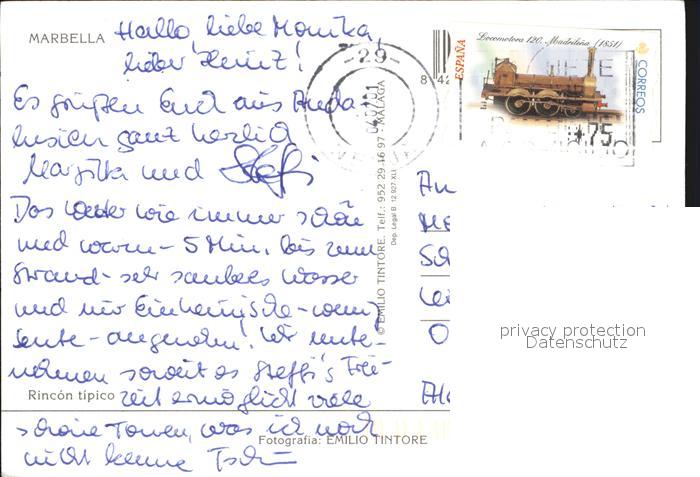 MARBELLA
Hallo, liebe Monika,
lieber Heinz!
Es grüßen Euch aus Anda-
lusien ganz herzlich
Margitta und Steffi
Das Wetter wie immer schön
und warm - 5 Min. bis zum
Strand - sehr sauberes Wasser
und nur Einheimische - wenig
Leute - angenehm! Wir unter-
nehmen soweit es Steffi's Frei-
Rincón típico
zeit ermöglicht viele
schöne Touren, was ich noch
nicht kenne. Tschü
Fotografía: EMILIO TINTORE
© EMILIO TINTORE. Telf.: 952 29 16 97 - MALAGA
Dep. Legal B. 12.927-XLI
8 42
-29-
ESPAÑA
Locomotora 120, Madrileña (1851)
CORREOS
75
An
Sch
O
privacy protection
Datenschutz